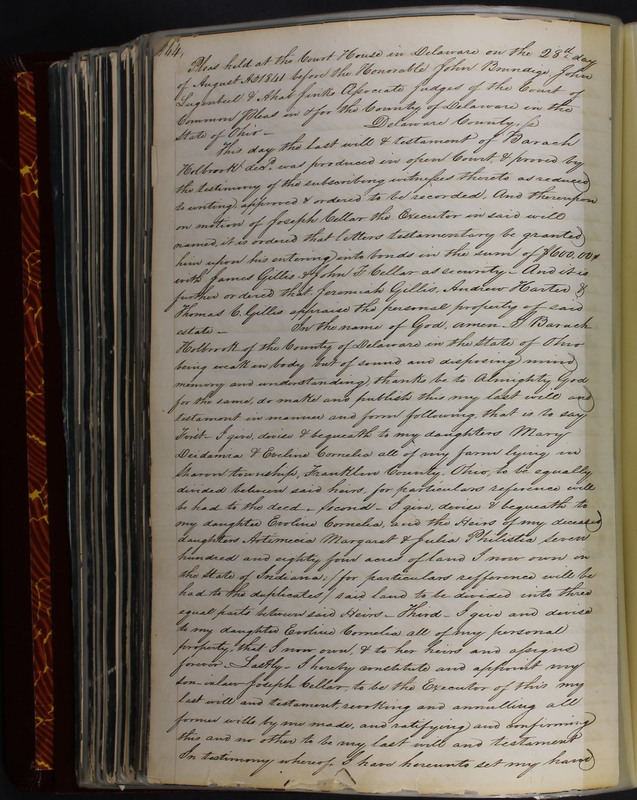 164,
Pleas held at the Court House in Delaware on the 23d day
of August AD 1841 before the Honorable John Brundige John
Lugenbeel & Ahab Jinks Associate Judges of the Court of
Common Pleas in & for the County of Delaware in the
State of Ohio – Delaware County, ss
This day the last will & testament of Barach
Holbrook decd. was produced in open Court, & proved by
the testimony of the subscribing witnesses thereto as reduced
to writing, approved & ordered to be recorded. And thereupon
on motion of Joseph Cellar the Executor in said will
named, it is ordered that letters testamentary be granted
him upon his entering into bonds in the sum of $600,00
with James Gillis & John F Cellar as security – And it is
further ordered that Jeremiah Gillis, Andrew Harter &
Thomas C. Gillis appraise the personal property of said
estate – In the name of God, amen. I Barach
Holbrook of the County of Delaware in the State of Ohio
being weak in body but of sound and disposing mind
memory and understanding, thanks be to Almighty God
for the same, do make and publish this my last will and
testament in manner and form following, that is to say
First – I give, devise & bequeath to my daughters Mary
Deidamia & Eveline Cornelia all of my farm lying in
Sharon township, Franklin County, Ohio, to be equally
divided between said heirs, for particulars reference will
be had to the deed – Second – I give, devise & bequeath to
my daughter Eveline Cornelia, and the Heirs of my deceased
daughters Artimecia Margaret & Julia Philista, seven
hundred and eighty four acres of land I now own in
the State of Indiana, (for particulars refference will be
had to the duplicates,) said land to be divided into three
equal parts between said Heirs – Third – I give and devise
to my daughter Eveline Cornelia all of my personal
property, that I now own, & to her heirs and assigns
forever – Lastly – I hereby constitute and appoint my
son-in-law Joseph Cellar, to be the Executor of this my
last will and testament, revoking and annulling all
former wills by me made, and ratifying and confirming
this and no other to be my last will and testament
In testimony whereof I have hereunto set my hand